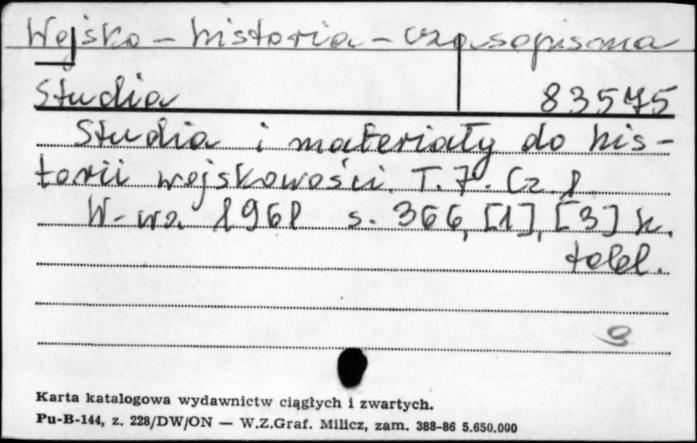 Wojsko – historia – czasopisma
Studia 83575
Studia i materiały do his-
torii wojskowości. T. 7. Cz. 1.
W-wa 1961 s. 366, [1], [3] k.
tabl.
9
Karta katalogowa wydawnictw ciągłych i zwartych.
Pu-B-144, z. 228/DW/ON — W.Z.Graf. Milicz, zam. 388-86 5.650.000